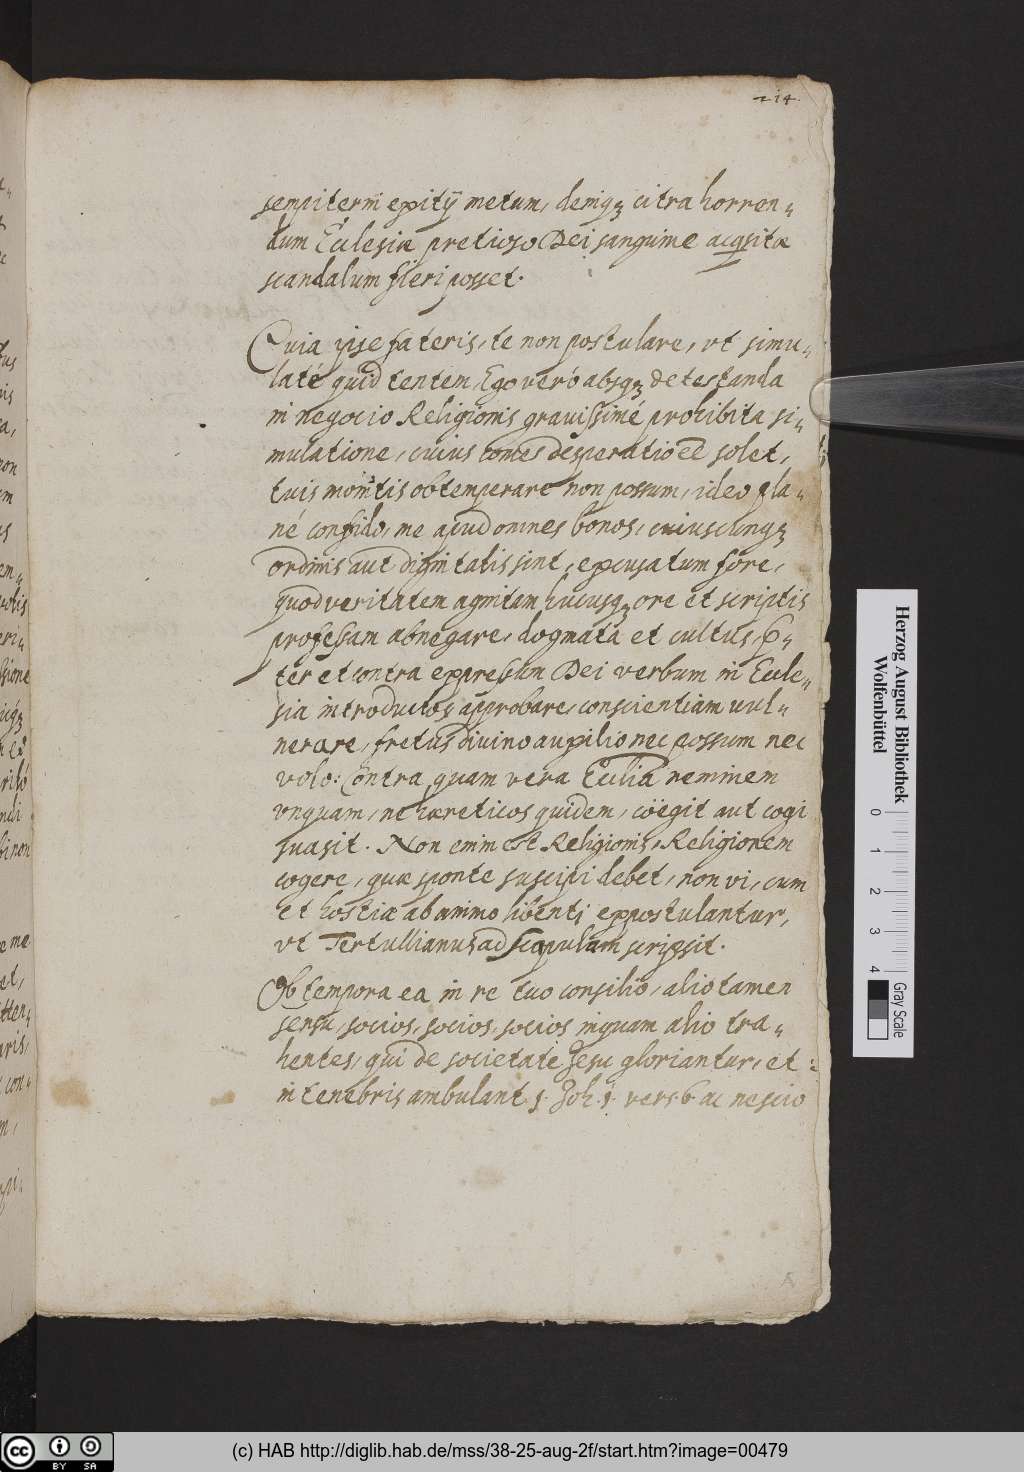 214.
sempiterni exitij metum, deniqꝫ citra horren„
dum Ecclesiæ pretioso Dei sanguine acqsitæ
scandalum fieri posset.
Quia ipse fateris, te non postulare, vt simu„
laté quid tentem, Ego veró absqꝫ detestanda
in negocio Religionis grauissimé prohibita si„
mulatione, cuius comes desperatio eẽ solet,
tuis monitis obtemperare non possum, ideo pla„
né confido, me apud omnes bonos, cuiuscunqꝫ
ordinis aut dignitatis sint, excusatum fore,
quod veritatem agnitam hucusqꝫ ore et scriptis
professam abnegare, dogmata et cultus, p„
ter et contra expressum Dei verbum in Eccle„
sia introductos approbare, conscientiam vul„
nerare, fretus divino auxilio nec possum nec
volo: Contra quam vera Ecclia neminem
vnquam, ne hæreticos quidem, cöegit aut cogi
suasit. Non enim est Religionis, Religionem
cogere, quæ sponte suscipi debet, non vi, cum
et hostiæ ab animo libenti expostulantur,
vt Tertullianus ad Scapulam scripsit.
Obtempora ea in re tuo consilio, alio tamen
sensu, socios, socios, socios inquam alio tra„
hentes, qui de societate Jesu gloriantur, et
in tenebris ambulant 1. Joh. 1. vers 6 ac nescio
Herzog August Bibliothek
Wolfenbüttel
0 1 2 3 4
Gray Scale
cc BY SA
(c) HAB http://diglib.hab.de/mss/38-25-aug-2f/start.htm?image=00479